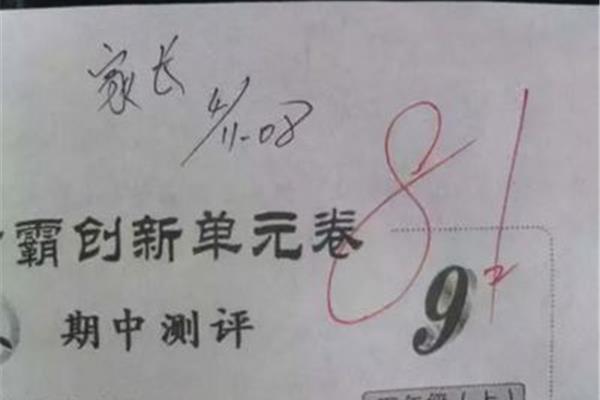 家长
4/11-08
81
霸创新单元卷
期中测评
9
年级（上）